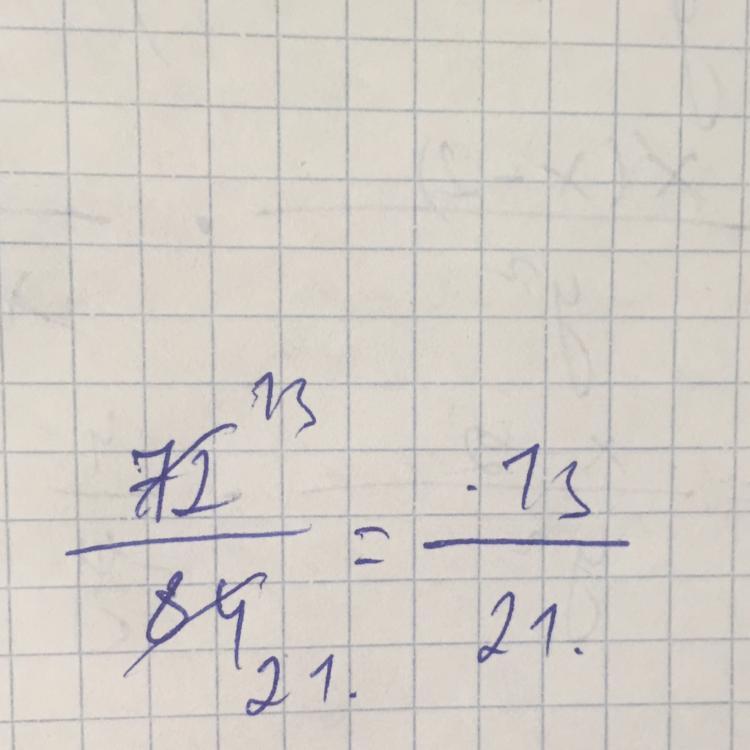 72 13 / 84 21. = .13 / 21.